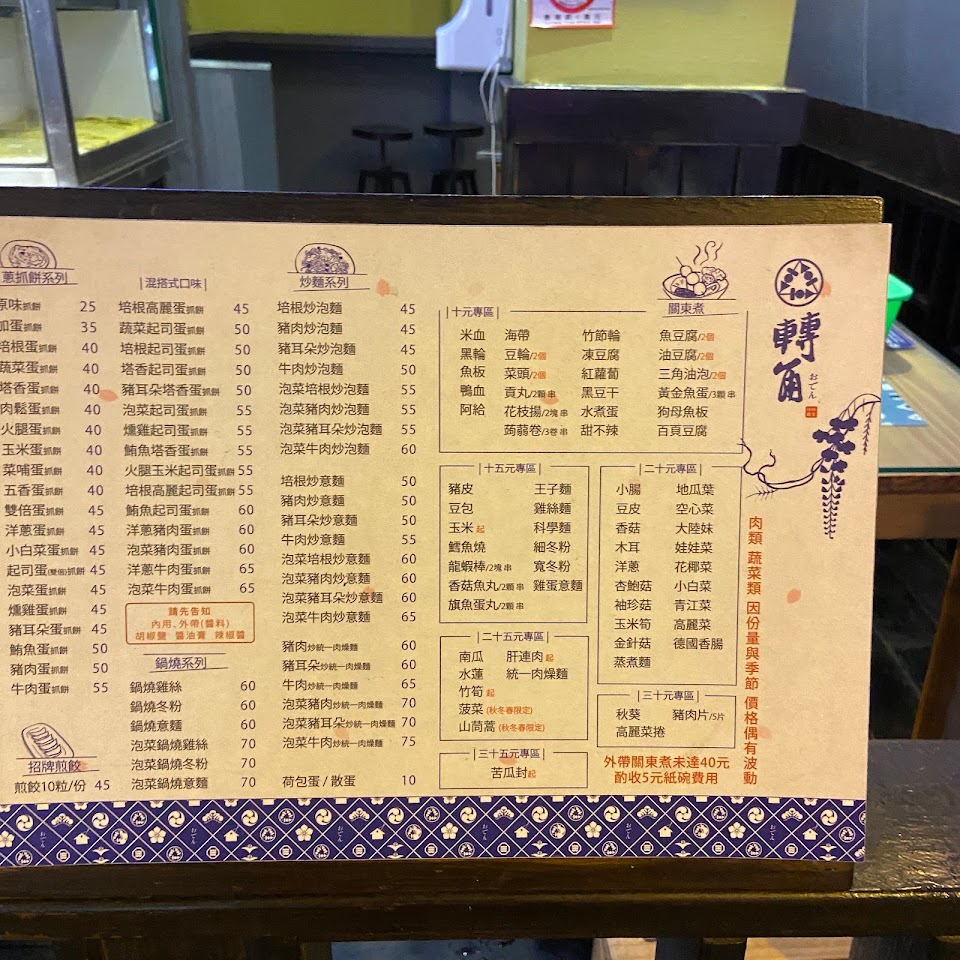 蔥抓餅系列
原味抓餅 25
加蛋抓餅 35
培根蛋抓餅 40
蔬菜蛋抓餅 40
塔香蛋抓餅 40
肉鬆蛋抓餅 40
火腿蛋抓餅 40
玉米蛋抓餅 40
菜哺蛋抓餅 40
五香蛋抓餅 40
雙倍蛋抓餅 45
洋蔥蛋抓餅 45
小白菜蛋抓餅 45
起司蛋(雙個)抓餅 45
泡菜蛋抓餅 45
燻雞蛋抓餅 45
豬耳朵蛋抓餅 45
鮪魚蛋抓餅 50
豬肉蛋抓餅 50
牛肉蛋抓餅 55
招牌煎餃
煎餃10粒/份 45
混搭式口味
培根高麗蛋抓餅 45
蔬菜起司蛋抓餅 50
培根起司蛋抓餅 50
塔香起司蛋抓餅 50
豬耳朵塔香蛋抓餅 50
泡菜起司蛋抓餅 55
燻雞起司蛋抓餅 55
鮪魚塔香蛋抓餅 55
火腿玉米起司蛋抓餅 55
培根高麗起司蛋抓餅 55
鮪魚起司蛋抓餅 60
洋蔥豬肉蛋抓餅 60
泡菜豬肉蛋抓餅 60
洋蔥牛肉蛋抓餅 65
泡菜牛肉蛋抓餅 65
請先告知
內用、外帶(醬料)
胡椒鹽 醬油膏 辣椒醬
鍋燒系列
鍋燒雞絲 60
鍋燒冬粉 60
鍋燒意麵 60
泡菜鍋燒雞絲 70
泡菜鍋燒冬粉 70
泡菜鍋燒意麵 70
炒麵系列
培根炒泡麵 45
豬肉炒泡麵 45
豬耳朵炒泡麵 45
牛肉炒泡麵 50
泡菜培根炒泡麵 55
泡菜豬肉炒泡麵 55
泡菜豬耳朵炒泡麵 55
泡菜牛肉炒泡麵 60
培根炒意麵 50
豬肉炒意麵 50
豬耳朵炒意麵 50
牛肉炒意麵 55
泡菜培根炒意麵 60
泡菜豬肉炒意麵 60
泡菜豬耳朵炒意麵 60
泡菜牛肉炒意麵 65
豬肉炒統一肉燥麵 60
豬耳朵炒統一肉燥麵 60
牛肉炒統一肉燥麵 65
泡菜豬肉炒統一肉燥麵 70
泡菜豬耳朵炒統一肉燥麵 70
泡菜牛肉炒統一肉燥麵 75
荷包蛋/散蛋 10
關東煮
十元專區
米血 海帶 竹節輪 魚豆腐/2個
黑輪 豆輪/2個 凍豆腐 油豆腐/2個
魚板 菜頭/2個 紅蘿蔔 三角油泡/2個
鴨血 貢丸/2顆 串 黑豆干 黃金魚蛋/3顆 串
阿給 花枝揚/2塊 串 水煮蛋 狗母魚板
蒟蒻卷/3卷 串 甜不辣 百頁豆腐
十五元專區
豬皮 王子麵
豆包 雞絲麵
玉米起 科學麵
鱈魚燒 細冬粉
龍蝦棒/2塊 串 寬冬粉
香菇魚丸/2顆 串 雞蛋意麵
旗魚蛋丸/2顆 串
二十元專區
小腸 地瓜葉
豆皮 空心菜
香菇 大陸妹
木耳 娃娃菜
洋蔥 花椰菜
杏鮑菇 小白菜
袖珍菇 青江菜
玉米筍 高麗菜
金針菇 德國香腸
蒸煮麵
二十五元專區
南瓜 肝連肉起
水蓮 統一肉燥麵
竹筍起
菠菜(秋冬春限定)
山茼蒿(秋冬春限定)
三十元專區
秋葵 豬肉片/5片
高麗菜捲
三十五元專區
苦瓜封起
外帶關東煮未達40元
酌收5元紙碗費用
轉角
おでん
肉類 蔬菜類 因份量與季節 價格偶有波動